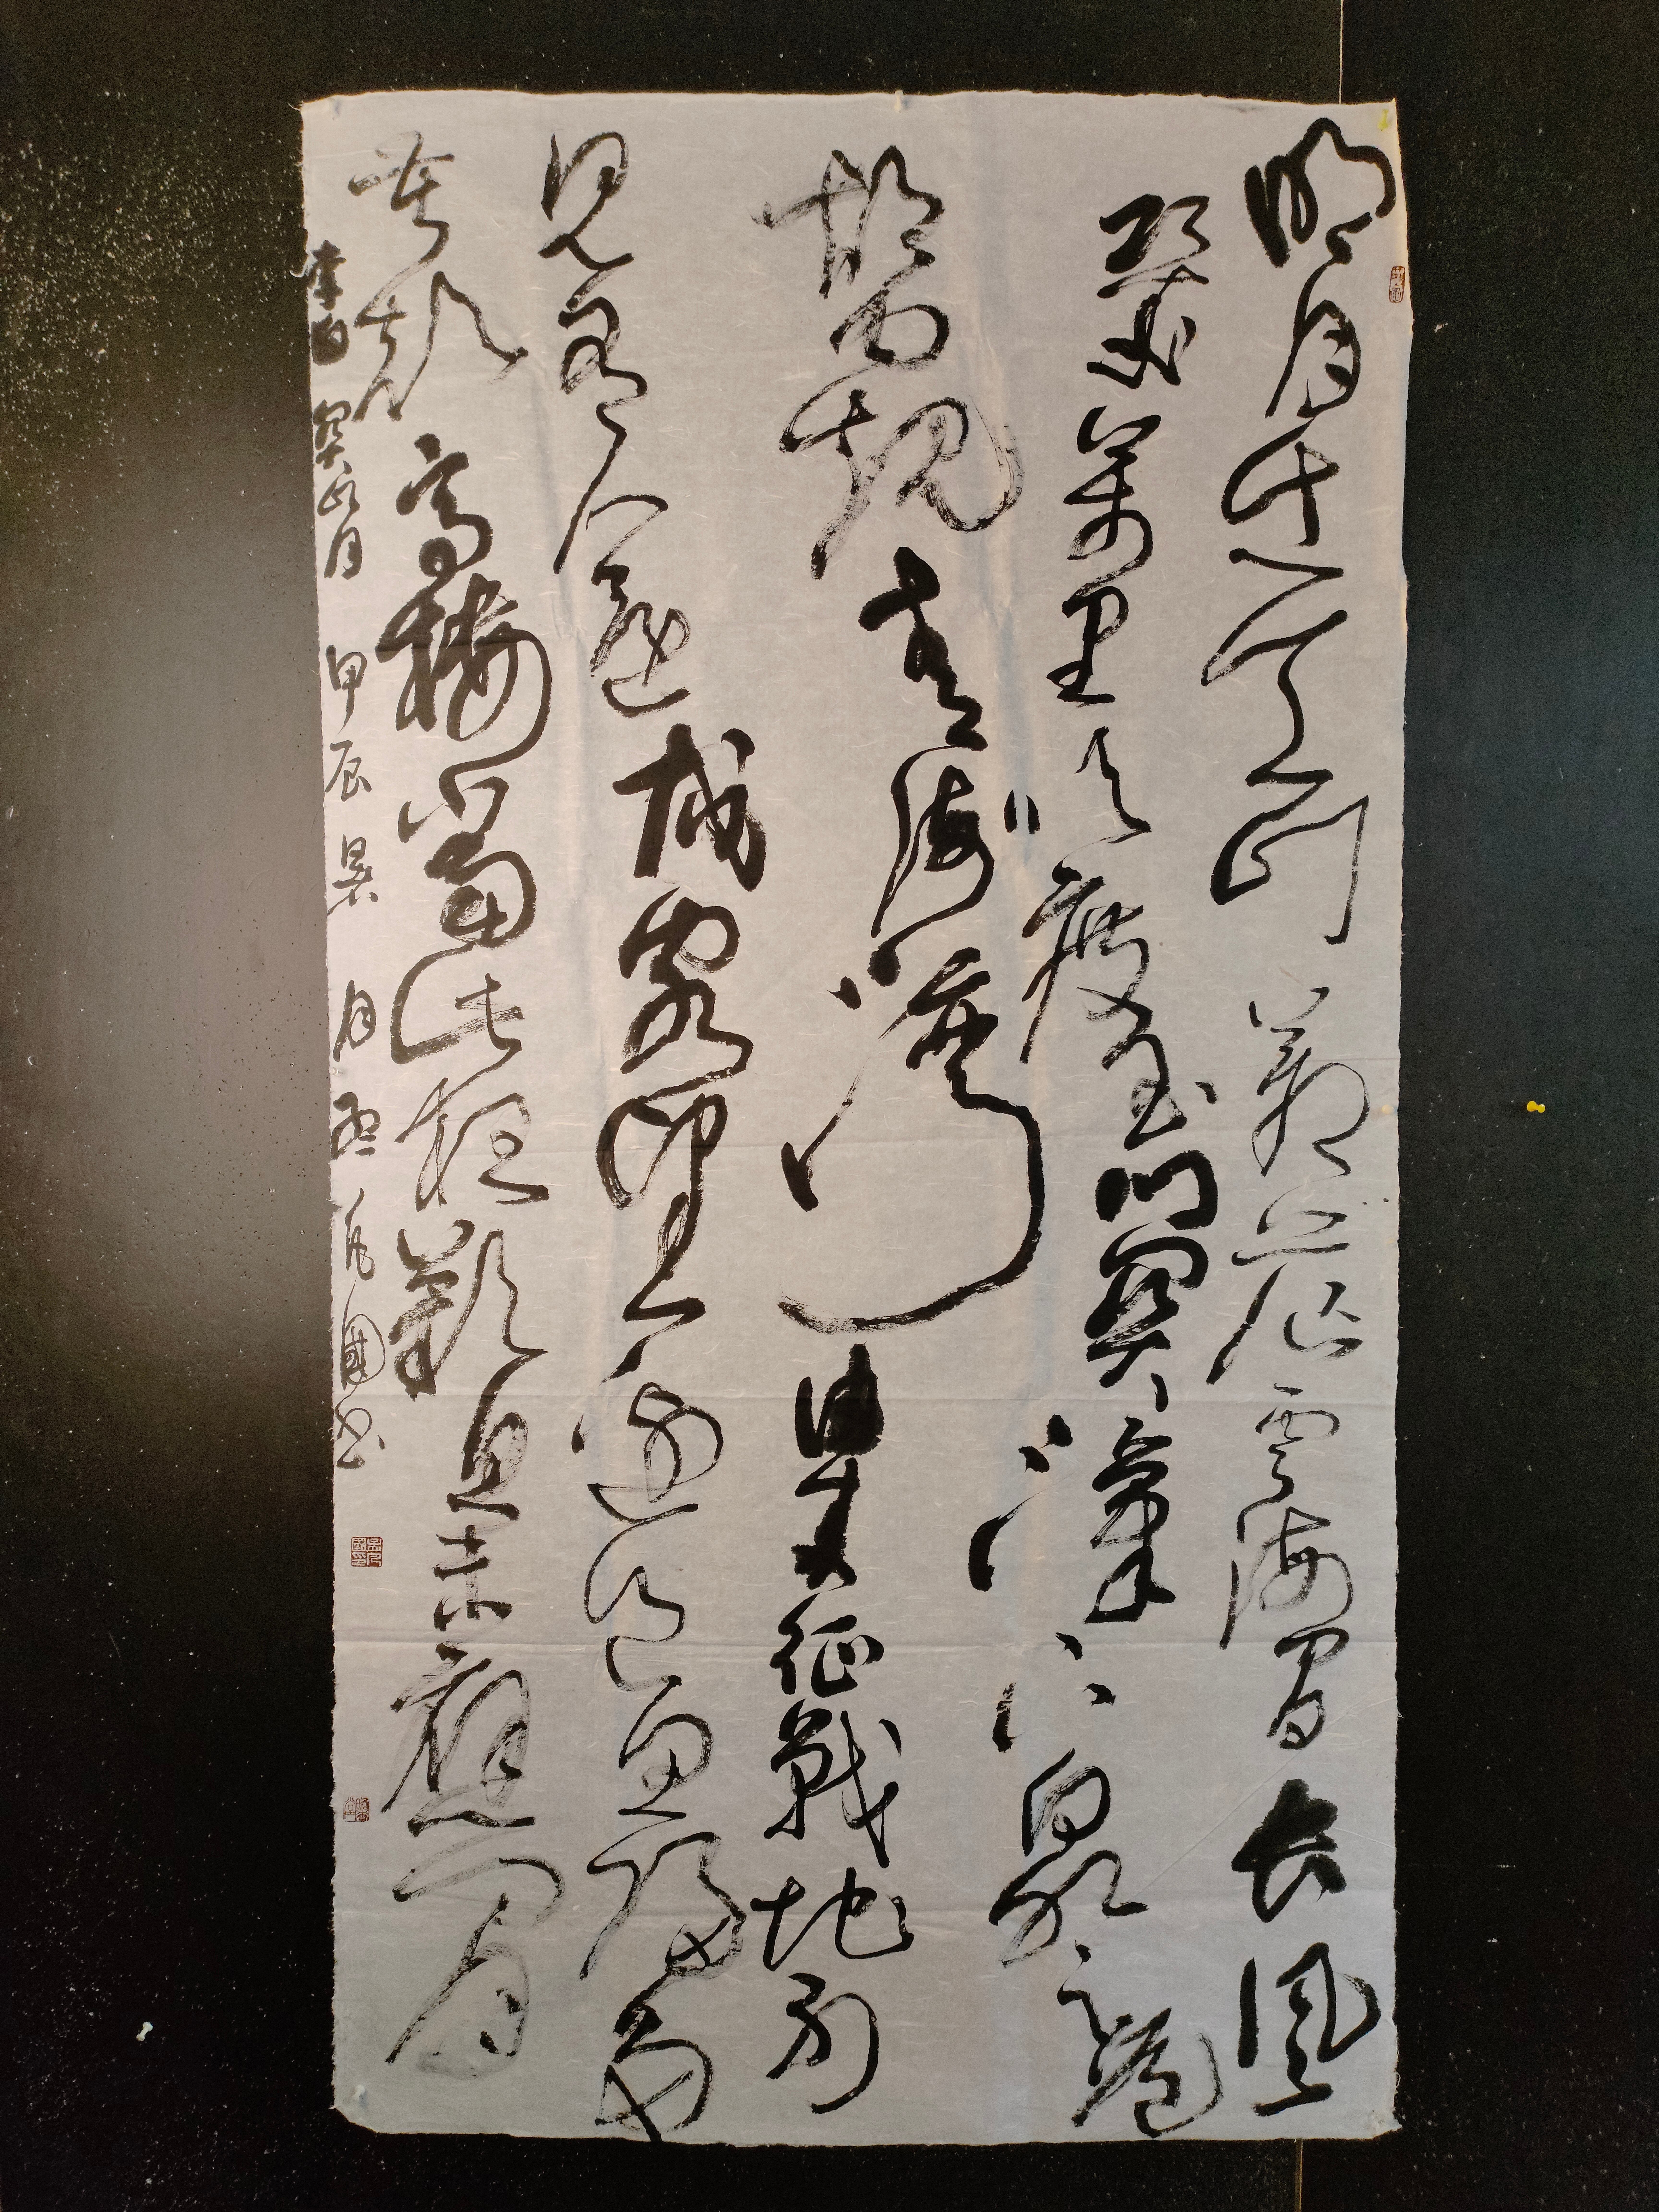 明月出天山蒼茫雲海間長風
幾萬里吹度玉門關漢下白登道
胡窺青海灣由來征戰地不
見有人還戍客望邊邑思歸多
苦顏高樓當此夜歎息未應閒
李白關山月 甲辰暑月孟凡國书